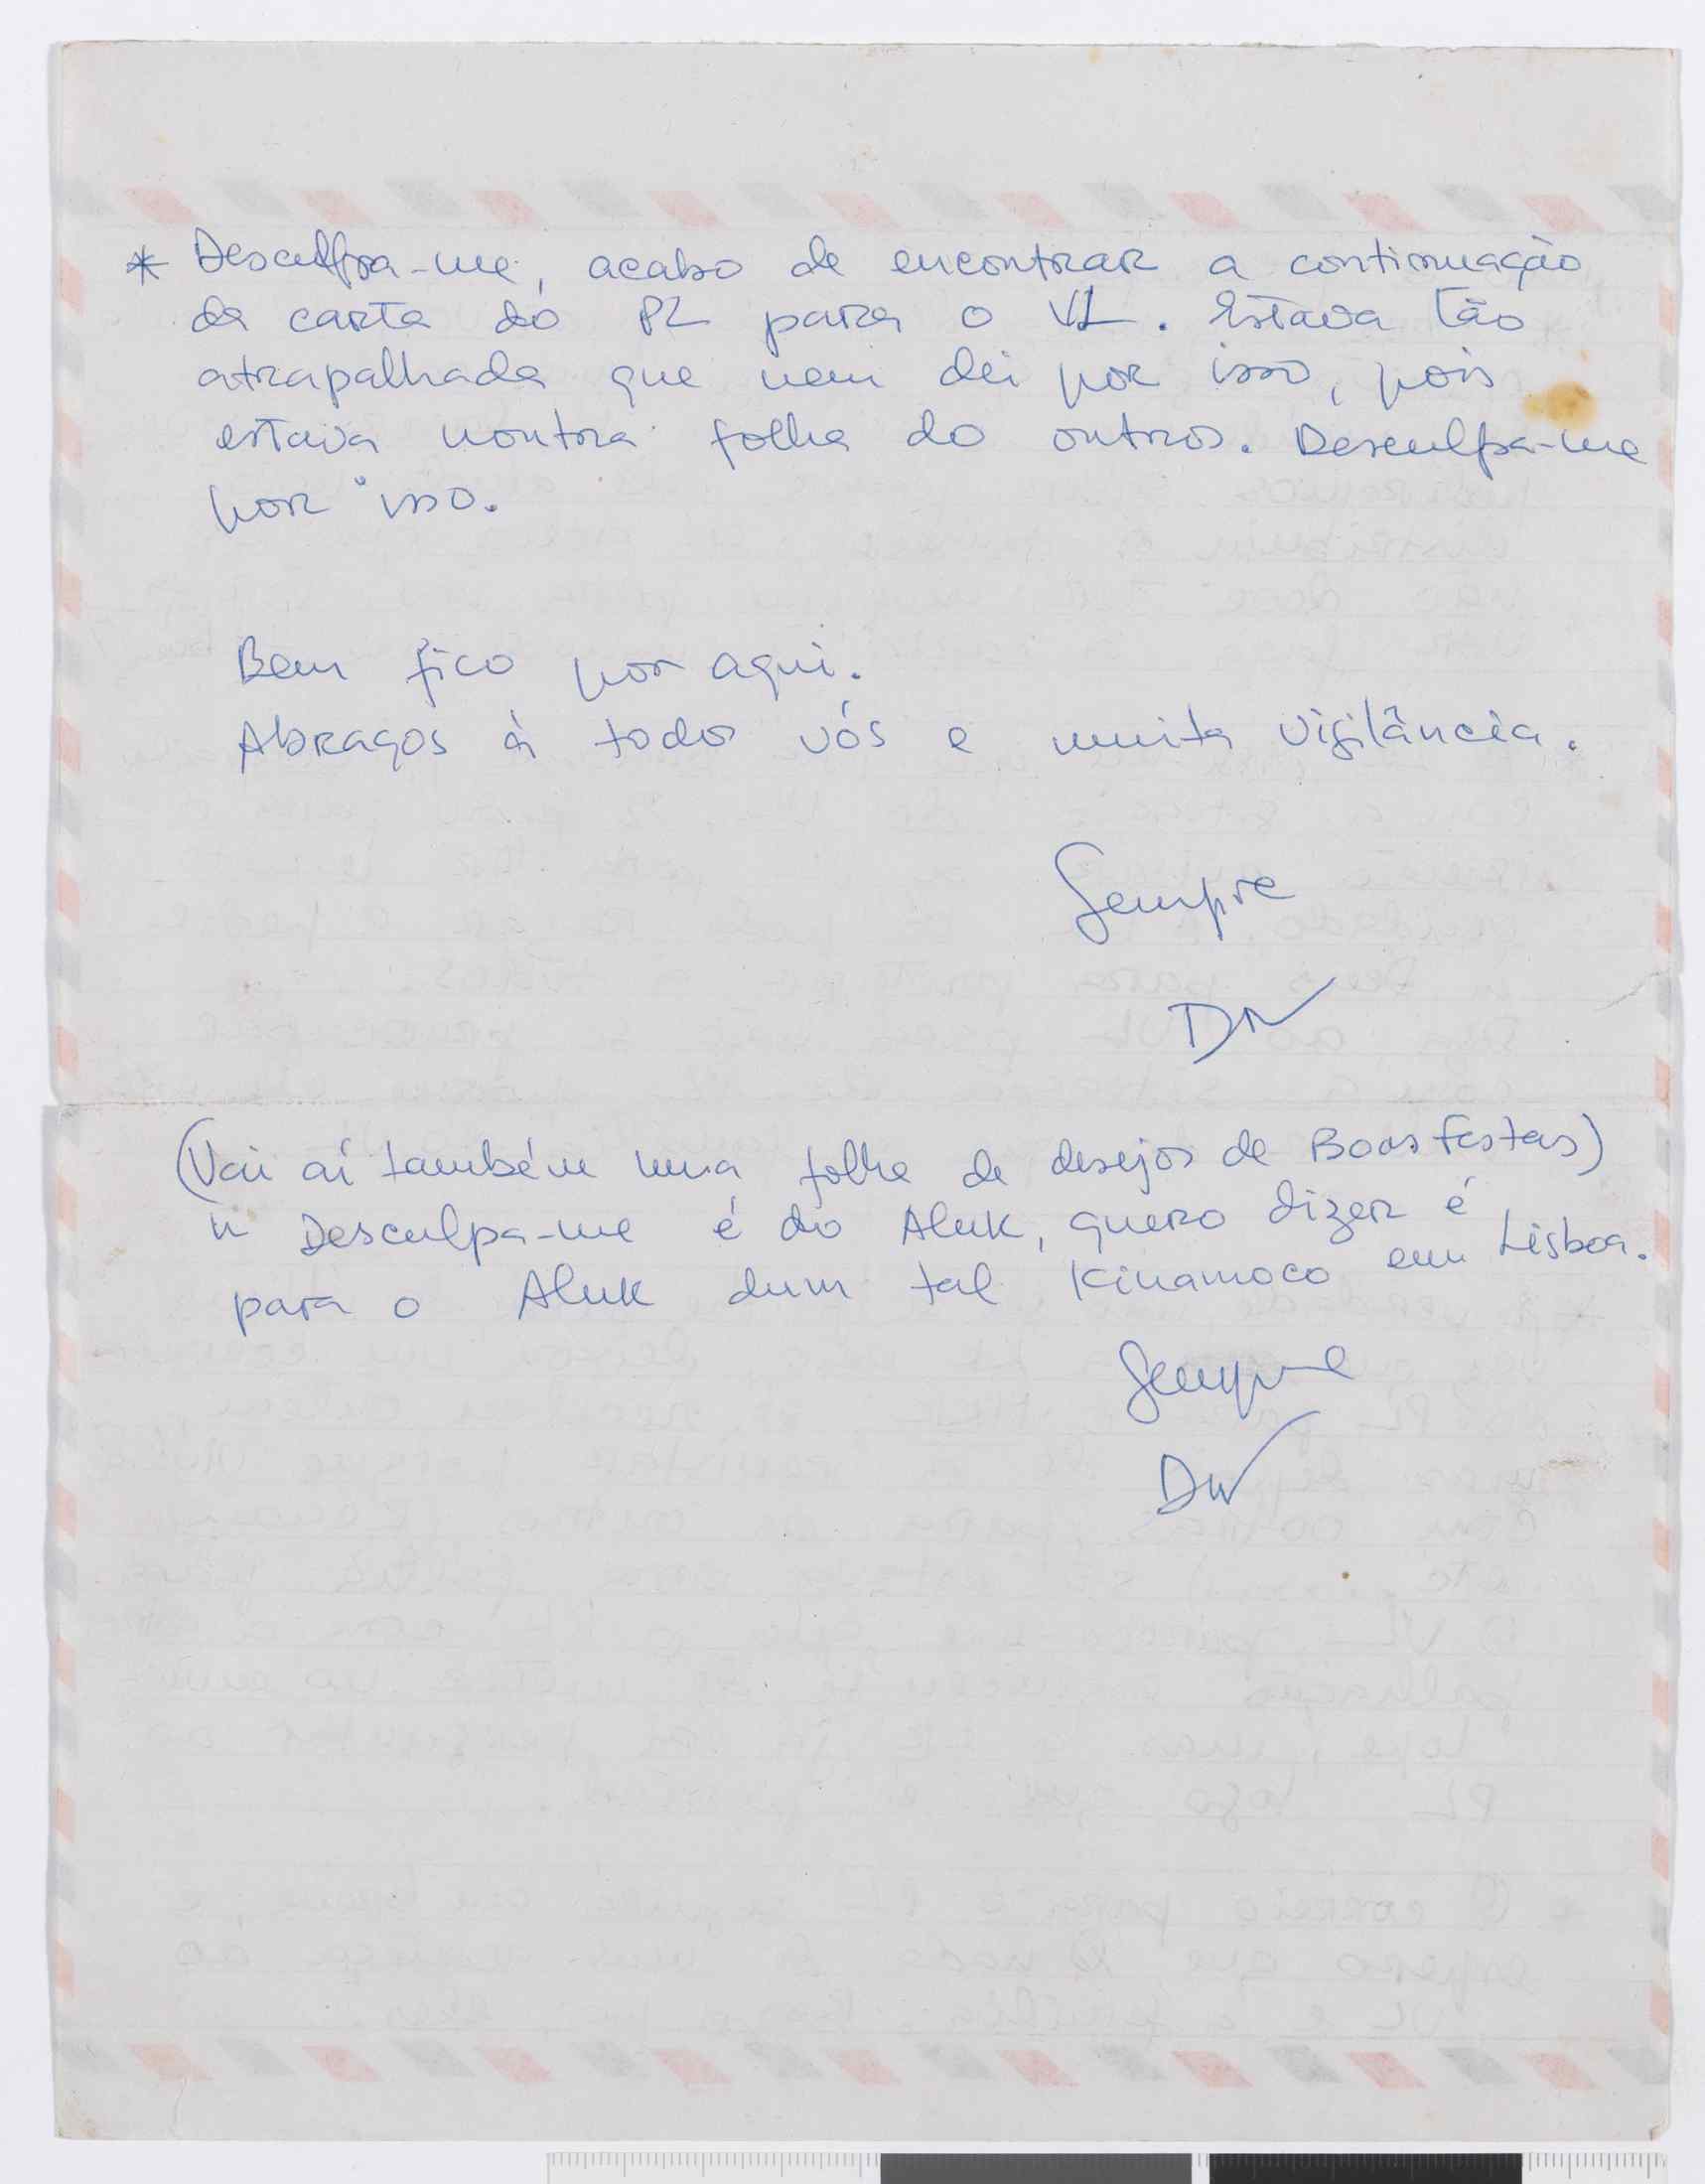 * Desculpa-me, acabo de encontrar a continuação
da carta do PL para o VL. Estava tão
atrapalhada que nem dei por isso, pois
estava noutra folha do outros. Desculpa-me
por isso.
Bem fico por aqui.
Abraços à todos vós e muita vigilância.
Sempre
DN
(Vai aí também uma folha de desejos de Boas Festas)
Desculpa-me é do Aluk, quero dizer é
para o Aluk dum tal Kinamoco em Lisboa.
Sempre
DN